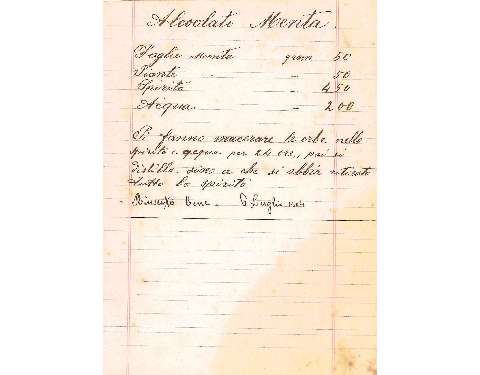 Alcolati Menta
Foglie Menta gram 50
Piante — 50
Spirito — 450
Acqua — 200
Si fanno macerare le erbe nello
spirito e acqua per 24 ore, poi si
distilla sino a che si abbia ritirato
tutto lo spirito
Riuscito bene. 6 Luglio